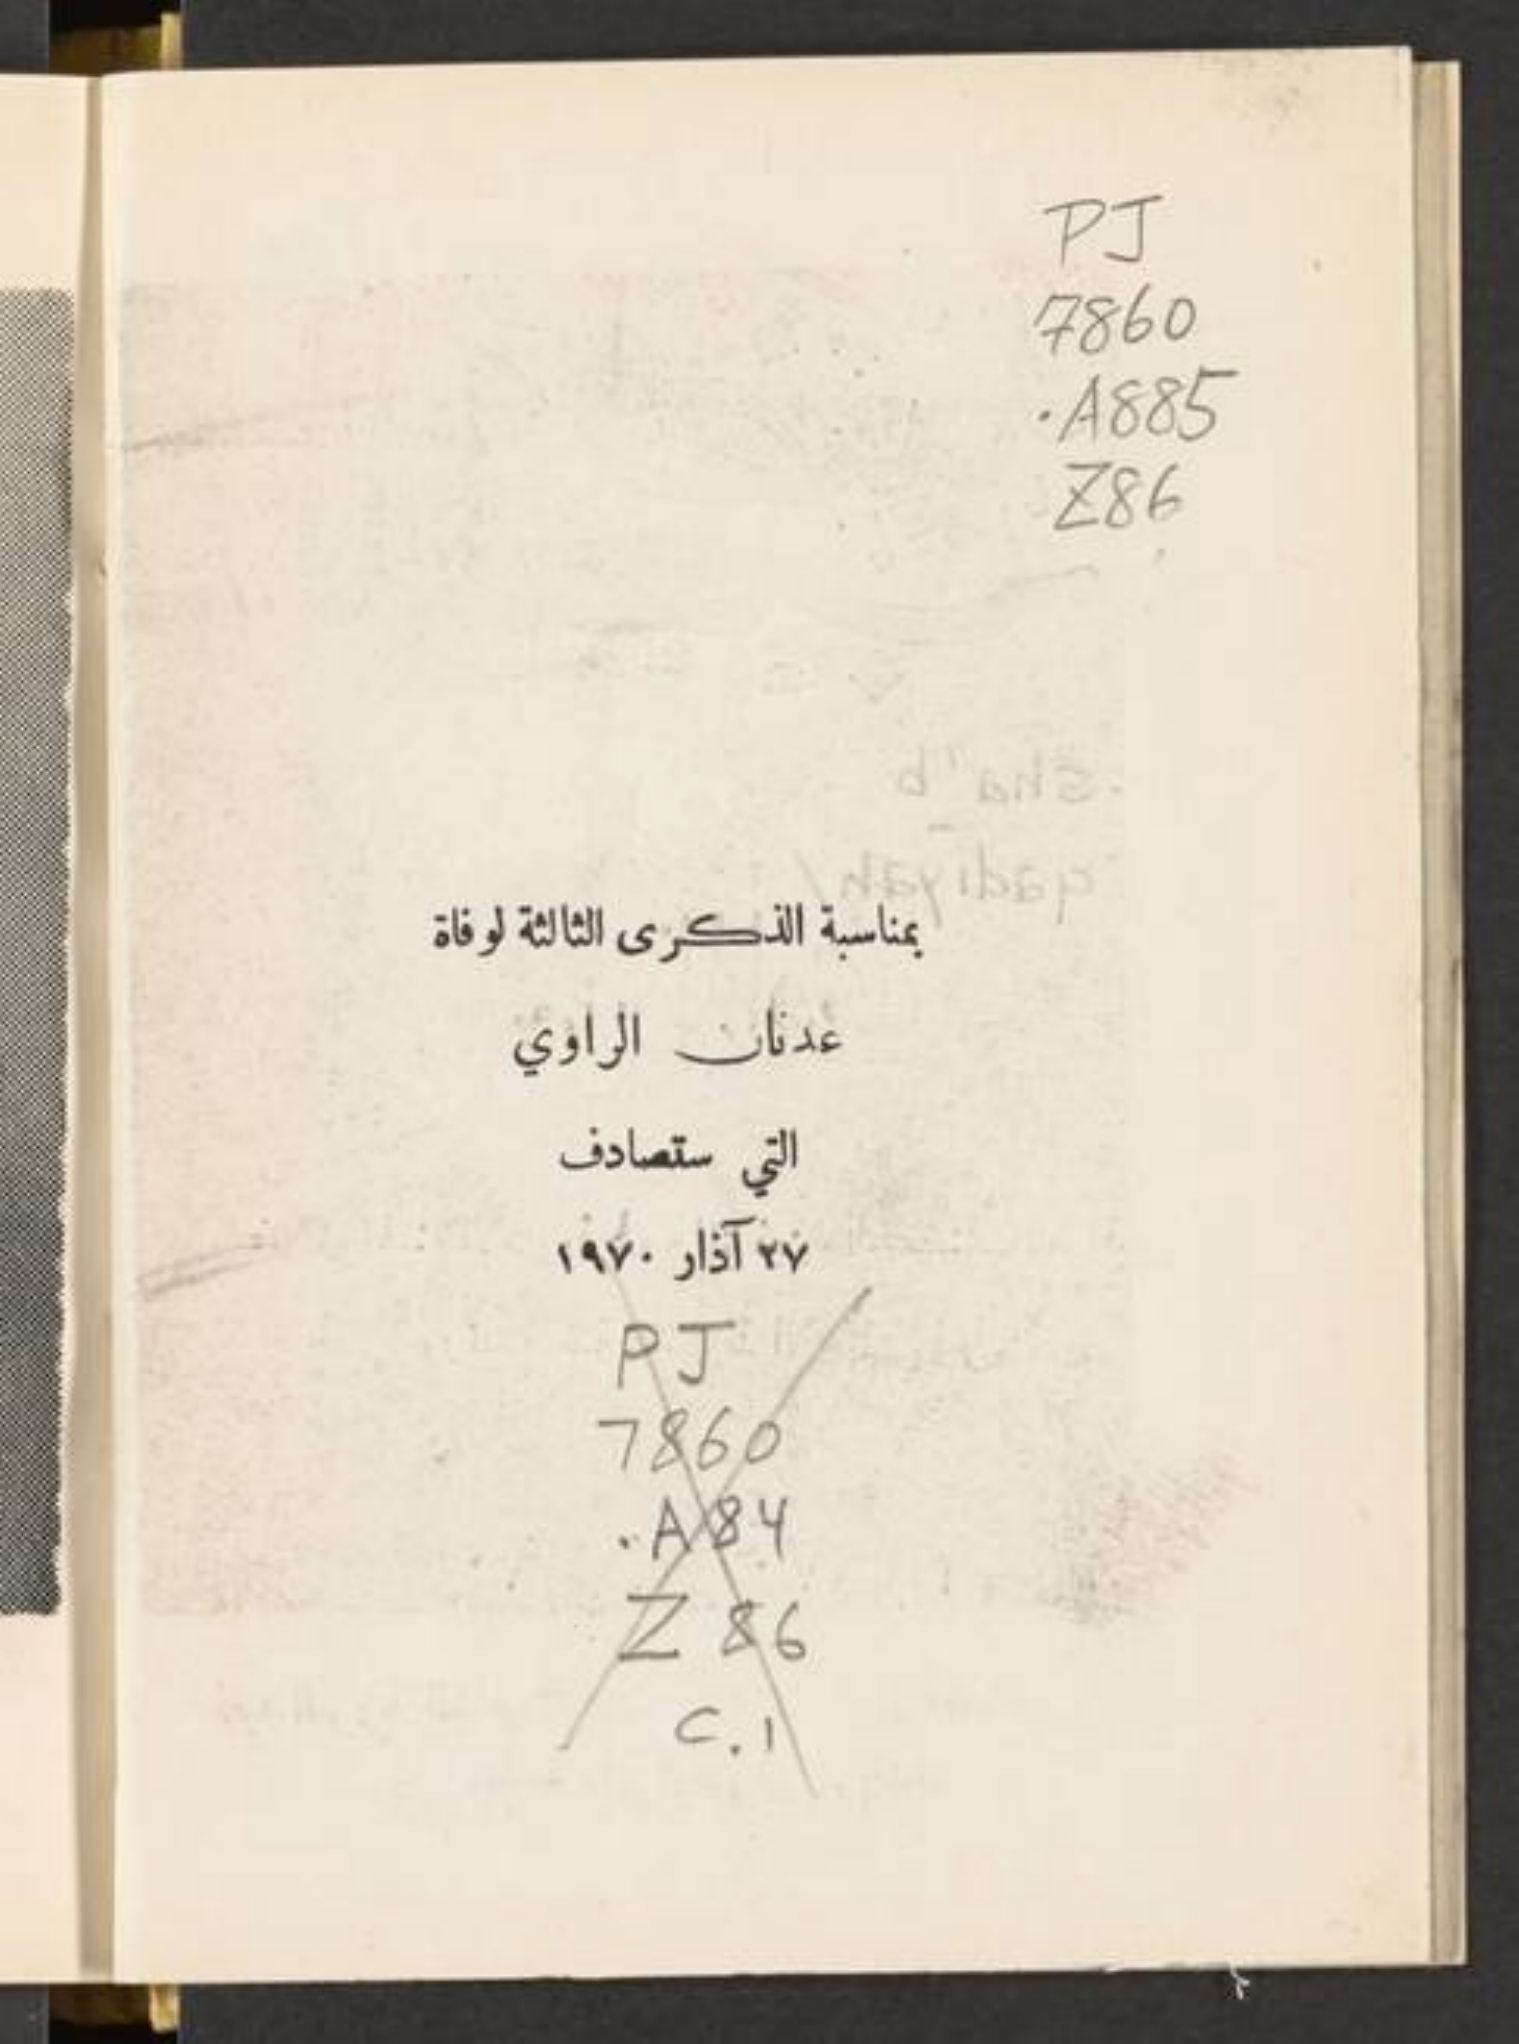 PJ
7860
.A885
Z86
بمناسبة الذكرى الثالثة لوفاة
عدنان الراوي
التي ستصادف
٢٧ آذار ١٩٧٠
PJ
7860
.A84
Z 86
C.1